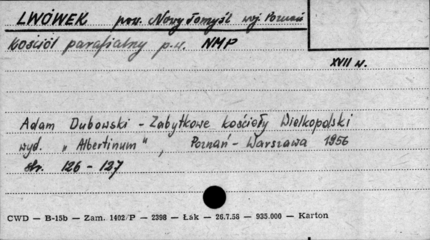 LWÓWEK pow. Nowy Tomyśl woj. Poznań
Kościół parafialny p.w. NMP
XVII w.
Adam Dubowski - Zabytkowe kościoły Wielkopolski
wyd. "Albertinum", Poznań - Warszawa 1956
str. 126 - 127
CWD — B-15b — Zam. 1402/P — 2398 — Łak — 26.7.56 — 935.000 — Karton